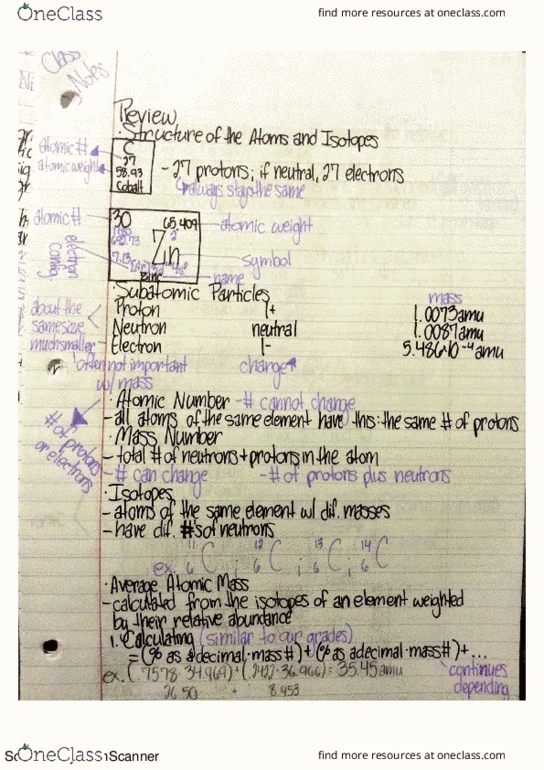 OneClass
find more resources at oneclass.com
Class Notes
Review
·Structure of the Atoms and Isotopes
atomic #
27
atomic weight
58.93
Cobalt
- 27 protons; if neutral, 27 electrons
always stays the same
atomic #
30
65.409
atomic weight
Zn
symbol
electron config.
zinc
name
·Subatomic Particles
mass
Proton 1+ 1.0073amu
about the same size
Neutron neutral 1.0087amu
much smaller
Electron 1- 5.486·10⁻⁴amu
often not important w/ mass
change
·Atomic Number -# cannot change
-all atoms of the same element have this: the same # of protons
# of protons or electrons
·Mass Number
-total # of neutrons+protons in the atom
-# can change -# of protons plus neutrons
·Isotopes
-atoms of the same element w/ dif. masses
-have dif. #'s of neutrons
ex. ¹¹₆C ; ¹²₆C ; ¹³₆C ; ¹⁴₆C
·Average Atomic Mass
-calculated from the isotopes of an element weighted
by their relative abundance
1. Calculating (similar to our grades)
=(% as a decimal·mass#)+(% as a decimal·mass#)+...
ex. (.7578·34.969)+(.2422·36.966)=35.45amu
continues depending
26.50 + 8.953
OneClass
Scanner
find more resources at oneclass.com